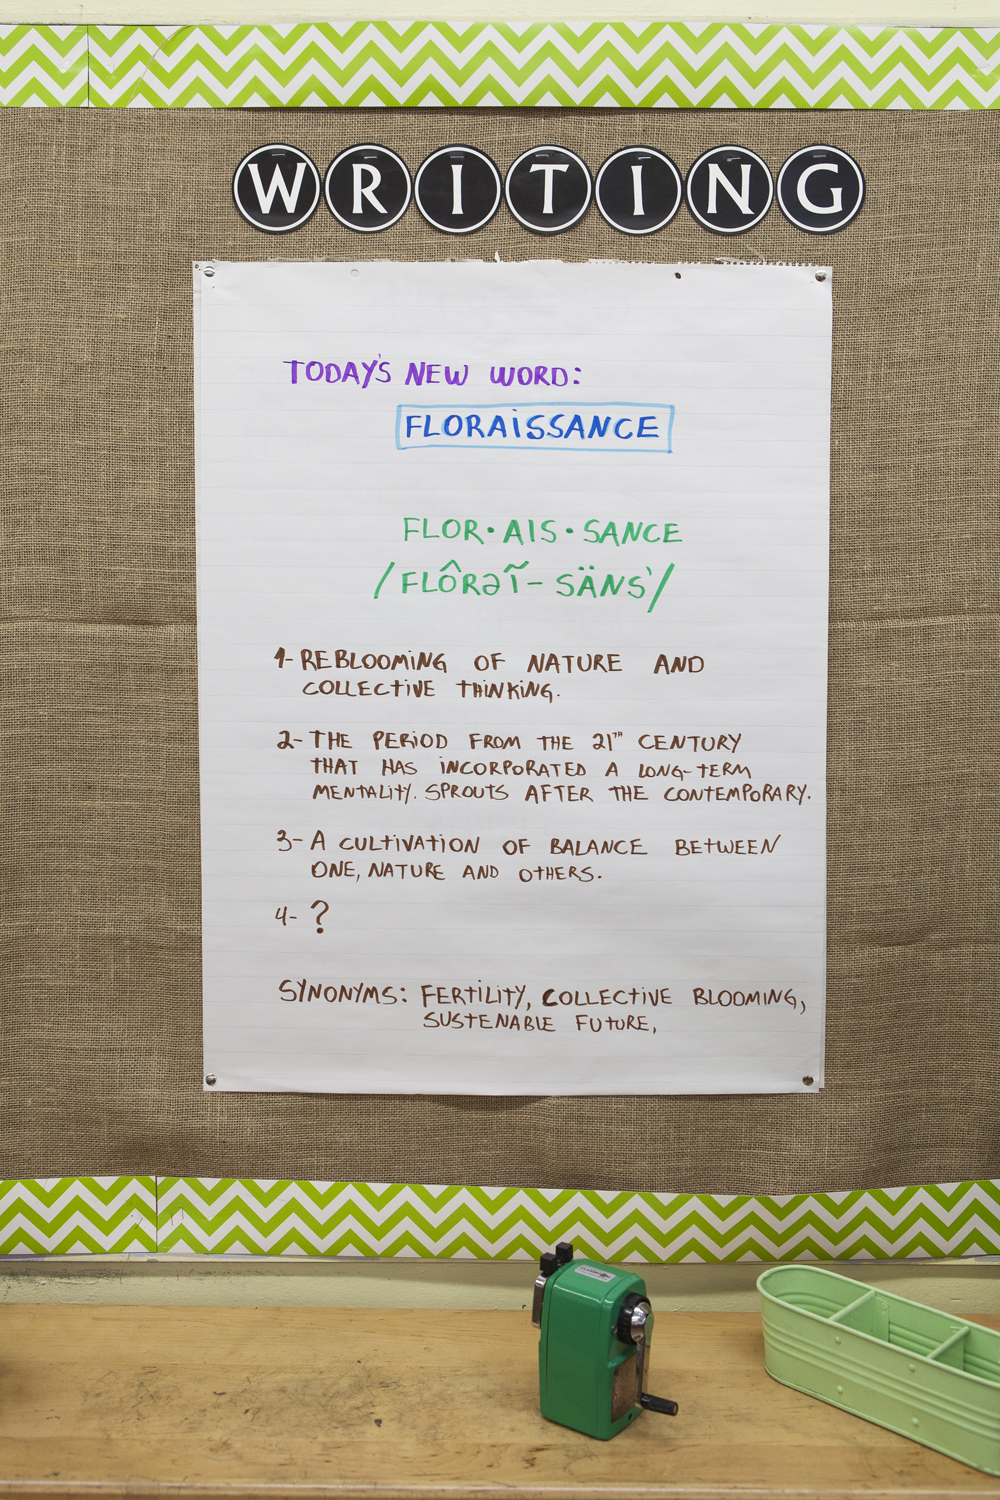 WRITING
TODAY'S NEW WORD:
FLORAISSANCE
FLOR·AIS·SANCE
/FLÔRƏĨ-SÄNS'/
1- REBLOOMING OF NATURE AND
COLLECTIVE THINKING.
2- THE PERIOD FROM THE 21TH CENTURY
THAT HAS INCORPORATED A LONG-TERM
MENTALITY. SPROUTS AFTER THE CONTEMPORARY.
3- A CULTIVATION OF BALANCE BETWEEN
ONE, NATURE AND OTHERS.
4- ?
SYNONYMS: FERTILITY, COLLECTIVE BLOOMING,
SUSTENABLE FUTURE,